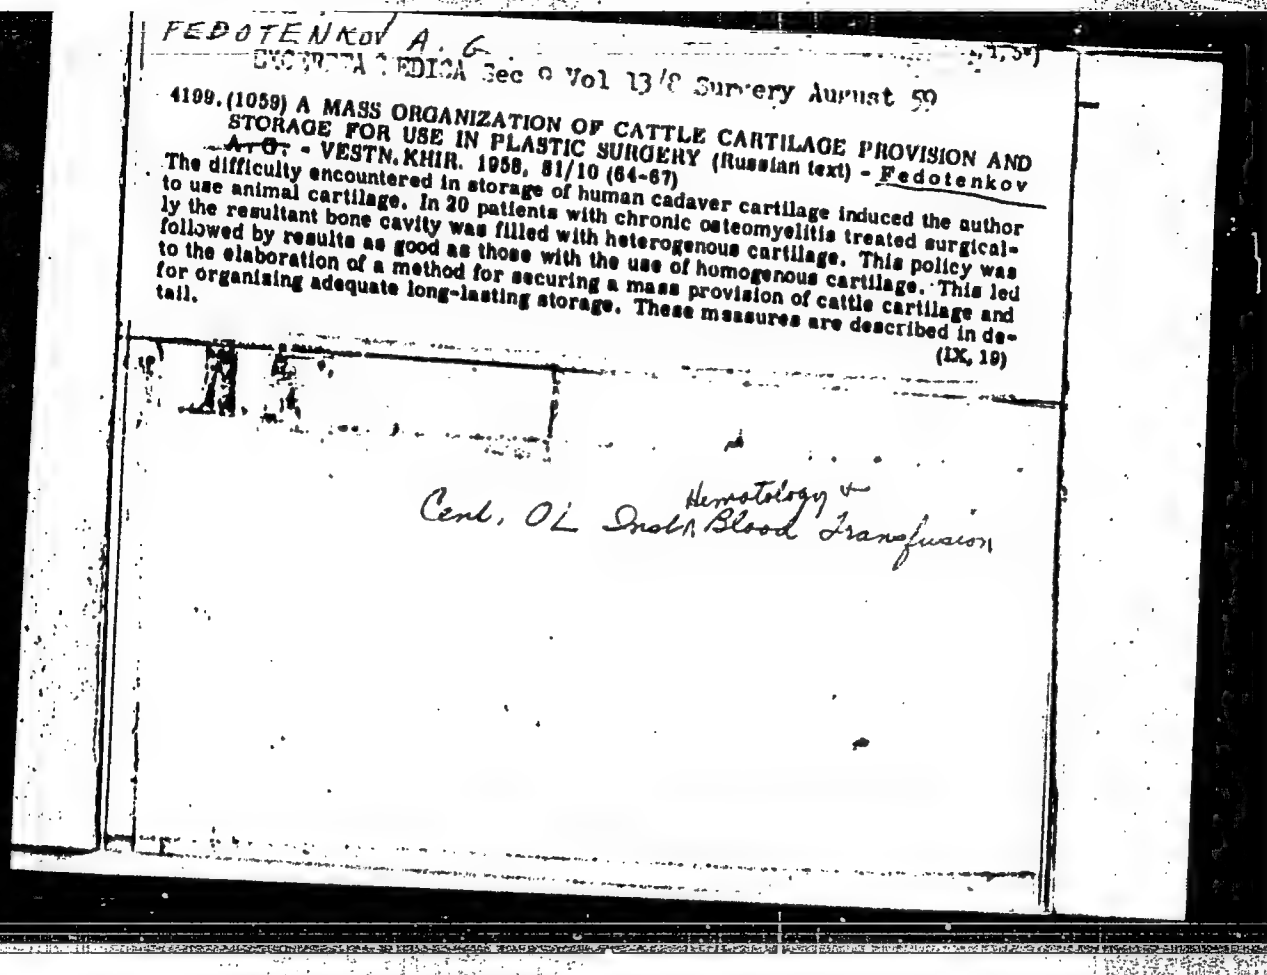 FEDOTENKOV A. G.
EXCERPTA MEDICA Sec 9 Vol 13/8 Surgery August 59
4199. (1059) A MASS ORGANIZATION OF CATTLE CARTILAGE PROVISION AND
STORAGE FOR USE IN PLASTIC SURGERY (Russian text) - Fedotenkov
A. G. - VESTN. KHIR. 1958, 81/10 (64-67)
The difficulty encountered in storage of human cadaver cartilage induced the author
to use animal cartilage. In 20 patients with chronic osteomyelitis treated surgical-
ly the resultant bone cavity was filled with heterogenous cartilage. This policy was
followed by results as good as those with the use of homogenous cartilage. This led
to the elaboration of a method for securing a mass provision of cattle cartilage and
for organising adequate long-lasting storage. These measures are described in de-
tail.
(IX, 19)
Hematology &
Cent. OL Inst. Blood Transfusion